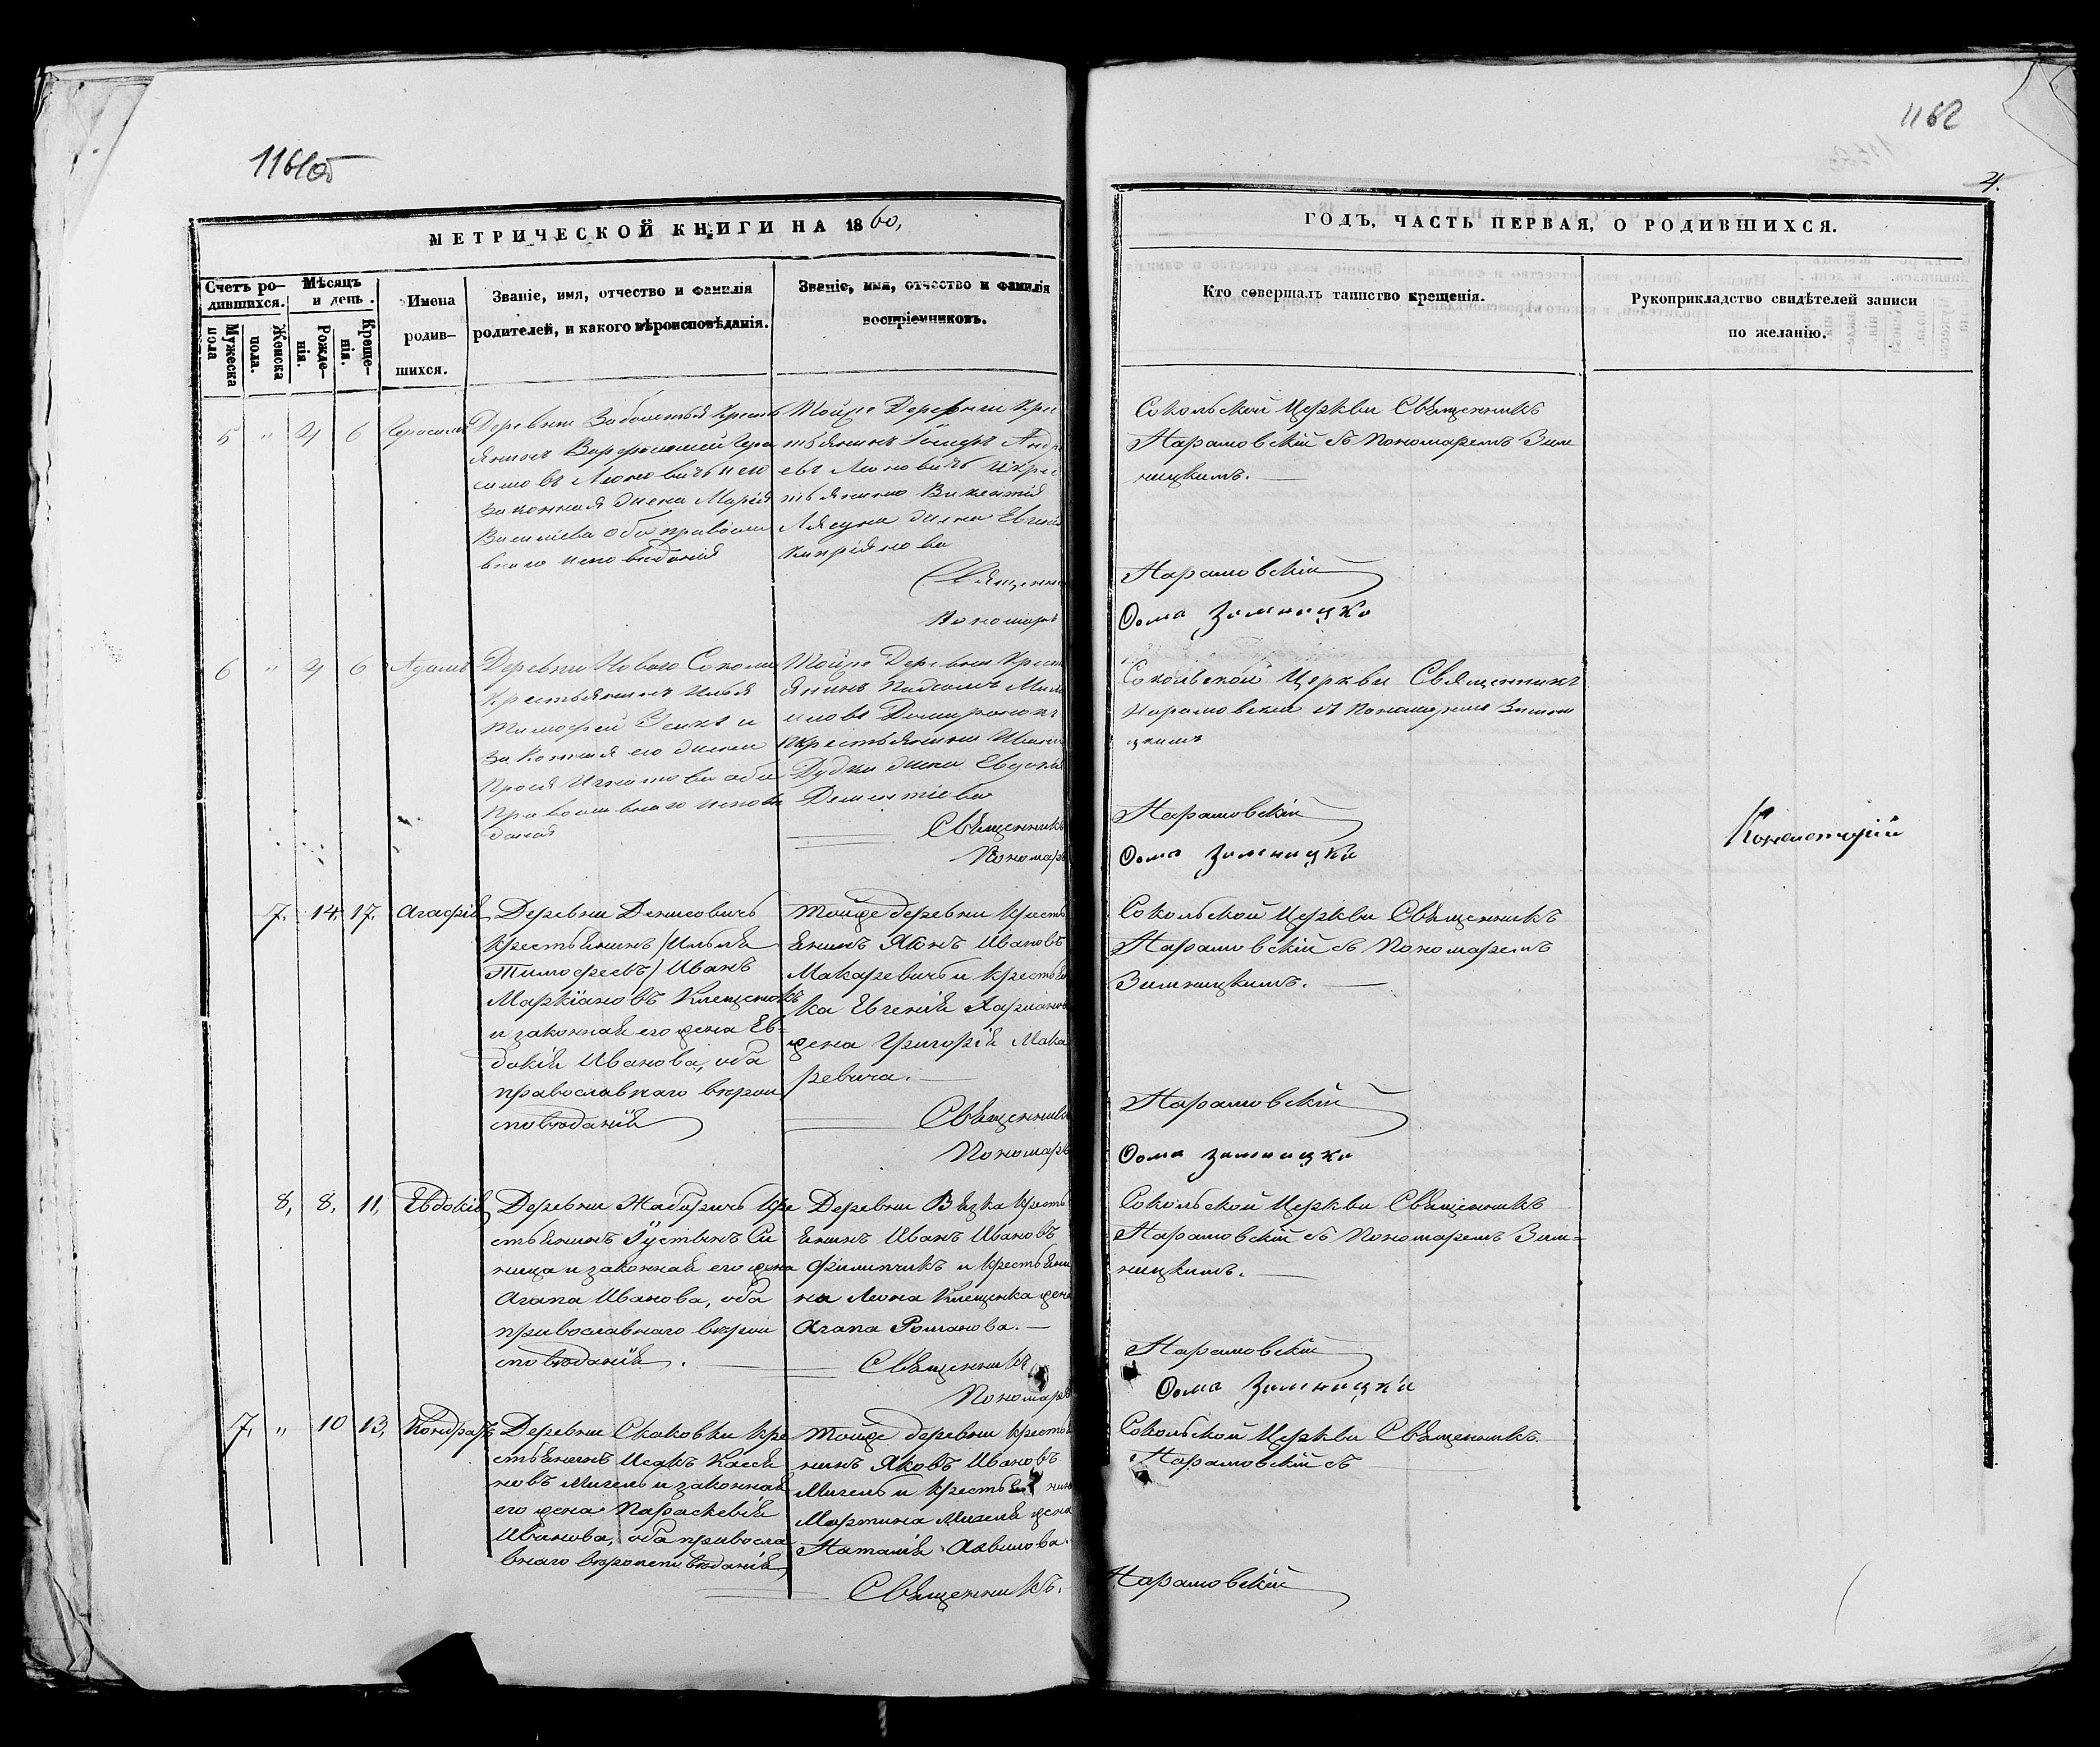 1161об
1162
4.
МЕТРИЧЕСКОЙ КНИГИ НА 1860,
ГОДЪ, ЧАСТЬ ПЕРВАЯ, О РОДИВШИХСЯ.
Счетъ ро-
дившихся.
Мужеска
пола
Женска
пола.
Мѣсяцъ
и день.
Рожде-
нія.
Креще-
нія.
Имена
родив-
шихся.
Званіе, имя, отчество и фамилія
родителей, и какого вѣроисповѣданія.
Званіе, имя, отчество и фамилія
воспріемниковъ.
Кто совершалъ таинство крещенія.
Рукоприкладство свидѣтелей записи
по желанію.
5 " 4 6 Герасимъ
Деревни Заболотья Кресть
янинъ Варфоломей Гера
симовъ и его
законная жена Марія
Василіева оба православ
внаго исповѣданія
Тойже Деревни Кре
стьянинъ Андре
евъ и кре
стьянина Викентія
жена Евгенія
Кипріянова
Священни
Пономарь
Сокольской Церкви Священникъ
Нарановскій съ Пономаремъ Зим
ницкимъ.
Нарановскій
Ѳома Зимницки
6 " 4 6 Адамъ
Деревни Новаго Сокола
Крестьянинъ Илья
Тимофей и
законная его жена
Игнатова оба
Православнаго исповѣ
данія
Тойже Деревни Крест
янинъ
и крестьянина Ивана
Дудки жена Евдокія
Дементіева
Священникъ
Пономарь
Сокольской Церкви Священникъ
Нарановскій съ Пономаремъ Зимни
цкимъ
Нарановскій
Ѳома Зимницки
Консисторіи
7. 14. 17. Агафія
Деревни Денисовичъ
крестьянинъ /Илья
Тимофеевъ/ Иванъ
Маркіановъ Клещенокъ
и законная его жена Ев-
докія Иванова, оба
православнаго вѣрои
сповѣданія
Тойже деревни кресть
янинъ Яковъ Ивановъ
Макаревичъ и крестьян
ка Евгенія
жена Григорія Мака
ревича.
Священникъ
Пономарь
Сокольской Церкви Священникъ
Нарановскій съ Пономаремъ
Зимницкимъ.
Нарановскій
Ѳома Зимницки
8, 8, 11, Евдокія
Деревни Жабричъ Кре
стьянинъ Іустинъ Си
ница и законная его жена
Агапа Иванова, оба
православнаго вѣрои
сповѣданія.
Деревни Вязка кресть
янинъ Иванъ Ивановъ
Филипчикъ и крестьяни
на Леона Клещенка жена
Агапа Романова.
Священникъ
Пономарь
Сокольской Церкви Священникъ
Нарановскій съ Пономаремъ Зим=
ницкимъ.
Нарановскій
Ѳома Зимницкій
7, " 10 13, Кондратъ
Деревни Скаковки кре
стьянинъ Исакъ Касья
новъ Мигель и законная
его жена Параскевія
Иванова, оба правосла
внаго вѣроисповѣданія,
Тойже деревни кресть
нинъ Яковъ Ивановъ
Мигель и крестьянина
Мартина Мигеля жена
Наталія
Священникъ.
Сокольской Церкви Священникъ
Нарановскій съ
Нарановскій